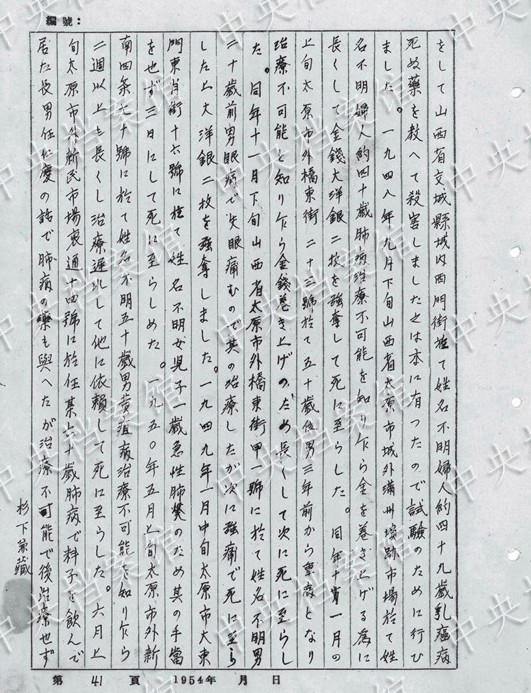 編號：
をして山西省交城縣城内西門街於て姓名不明婦人約四十九歳乳癌病
死ぬ藥を教へて殺害しましたとは本に有つたので試驗のために行ひ
ました。一九四八年九月下旬山西省太原市城外 場於て姓
名不明婦人約四十歳肺病治療不可能を知り乍ら金を巻き上げる為に
長くして金錢大洋銀二枚を強奪して死に至らした。同年十一月の
上旬太原市外橋東街二十三號於て五十歳位男三年前から となり
治療不可能と知り乍ら金錢巻き上げのため長くして次に死に至らし
た。同年十一月下旬山西省太原市外橋東街甲一號に於て姓名不明男
二十歳前男眼病で失眼痛むので其の治療したが次に強痛で死に至ら
した上大洋銀二枚を強奪しました。一九四九年一月中旬太原市大東
門東 街十六號に於て姓名不明女児子一歳急性肺 のため其の手當
を也ず三日にして死に至らしめた。一九五〇年五月上旬太原市外新
南四条七十號に於て姓名不明五十歳男黄疸病治療不可能と知り乍ら
二週以上も長くし治療遅れして他に依頼して死に至らした。六月上
旬太原市外新民市場裏通十四號に於任某六十歳肺病で料子を飲んで
居た長男任仁慶の話で肺病の藥も與へたが治療不可能で後治療也ず
杉下兼藏
第 41 頁 1954年 月 日
中央档案馆